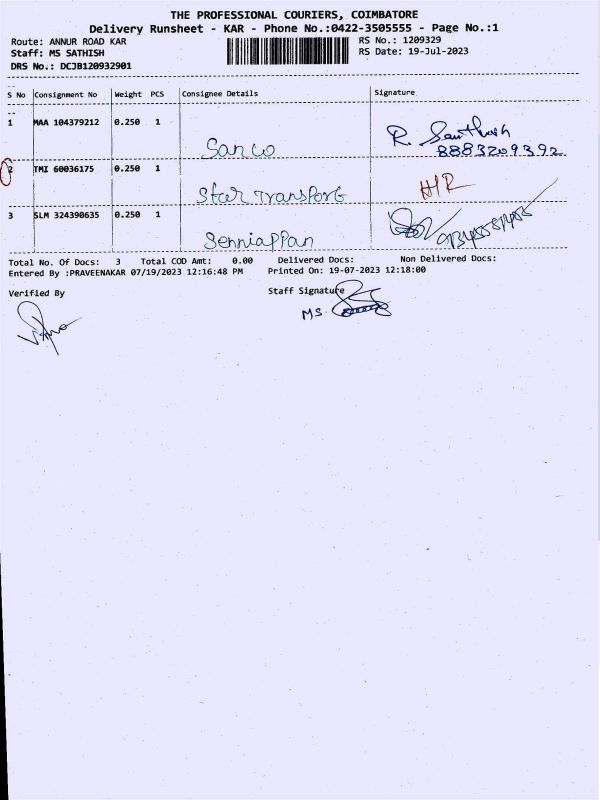 THE PROFESSIONAL COURIERS, COIMBATORE
Delivery Runsheet - KAR - Phone No.:0422-3505555 - Page No.:1
Route: ANNUR ROAD KAR RS No.: 1209329
Staff: MS SATHISH RS Date: 19-Jul-2023
DRS No.: DCJB120932901
S No Consignment No Weight PCS Consignee Details Signature
1 MAA 104379212 0.250 1
Sanco R. Santhosh
8883209392
2 TMI 60036175 0.250 1
Star Transport H/R
3 SLM 324390635 0.250 1
Senniappan
Total No. Of Docs: 3 Total COD Amt: 0.00 Delivered Docs: Non Delivered Docs:
Entered By :PRAVEENAKAR 07/19/2023 12:16:48 PM Printed On: 19-07-2023 12:18:00
Verified By Staff Signature
MS